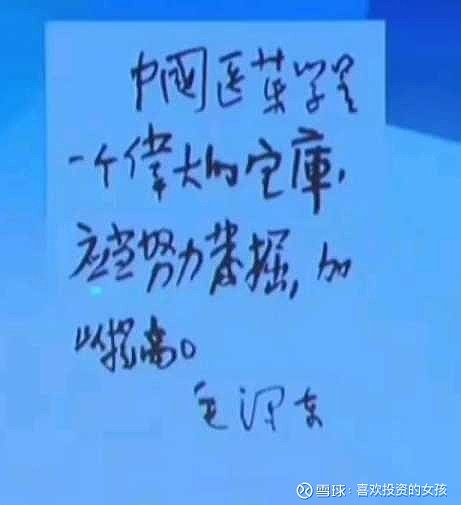 中國医药学是
一个偉大的宝庫，
应当努力发掘，加
以提高。
毛泽东
雪球：喜欢投资的女孩